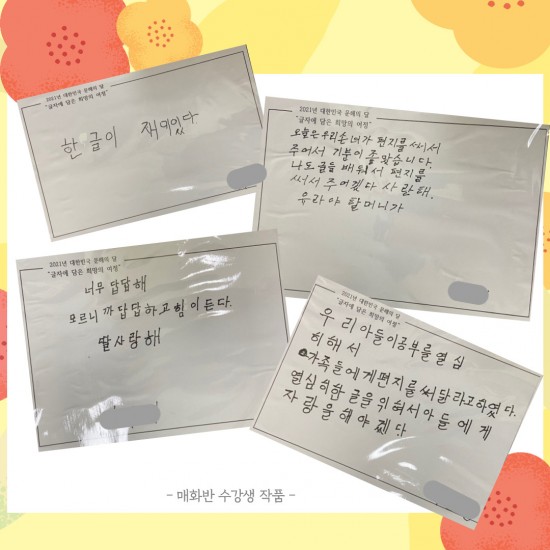 2021년 대한민국 문해의 달
"글자에 담은 희망의 여정"
한글이 재미있다
2021년 대한민국 문해의 달
"글자에 담은 희망의 여정"
오늘은 우리손녀가 편지를써서
주어서 기분이 좋았습니다.
나도글을 배워서 편지를
써서 주어겠다 사랑해.
유라야 할머니가
2021년 대한민국 문해의 달
"글자에 담은 희망의 여정"
너무 답답해
모르니까답답하고힘이든다.
딸사랑해
2021년 대한민국 문해의 달
"글자에 담은 희망의 여정"
우리아들이공부를열심
히해서
가족들에게편지를써달라고하였다.
열심히한글을위혀서아들에게
자랑을해야겠다
- 매화반 수강생 작품 -